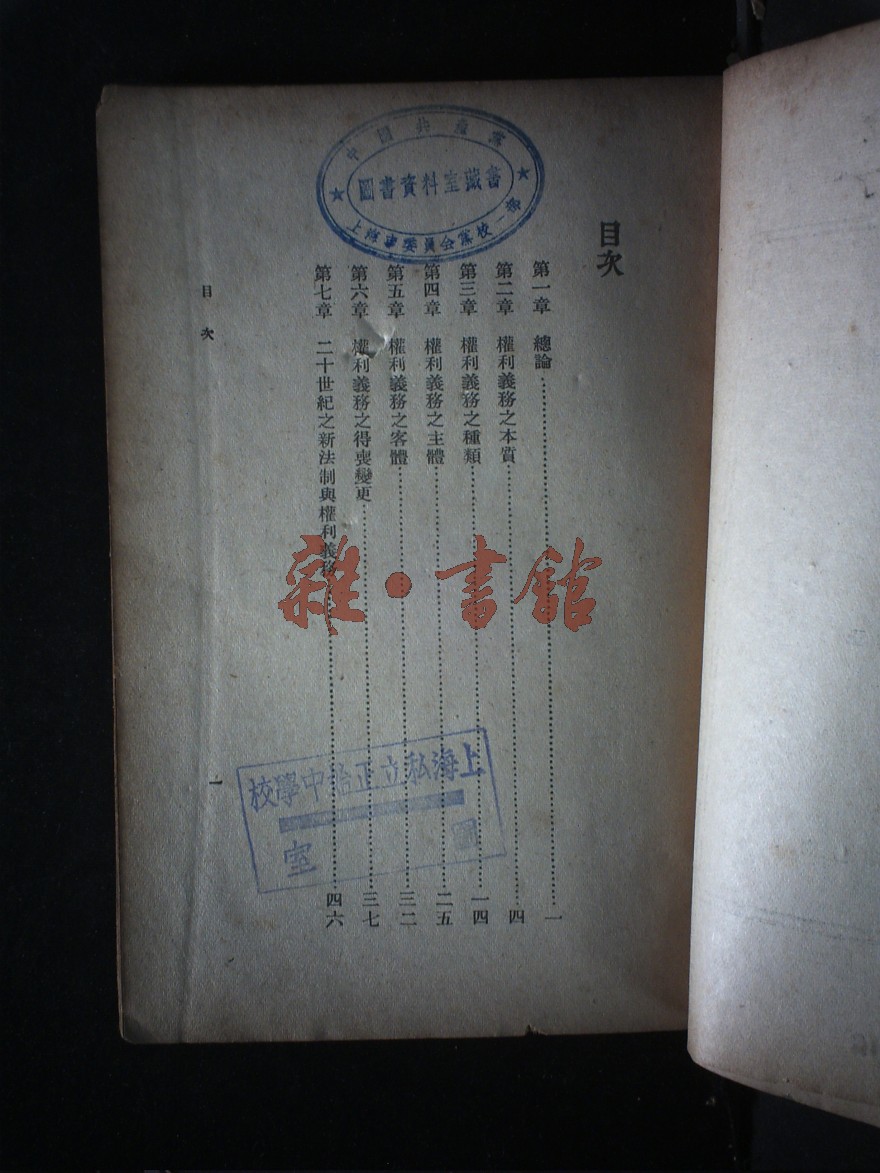 目次
第一章　總論……一
第二章　權利義務之本質……四
第三章　權利義務之種類……一四
第四章　權利義務之主體……二五
第五章　權利義務之客體……三二
第六章　權利義務之得喪變更……三七
第七章　二十世紀之新法制與權利義務……四六
目次
一
中國共產黨
圖書資料室藏書
上海市委員会黨校一部
雜·書館
上海私立正始中學校
圖
室